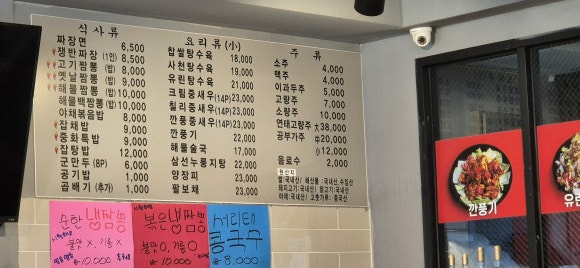 식사류
짜장면 6,500
쟁반짜장 (1인) 8,500
고기짬뽕 (밥) 8,000
옛날짬뽕 (밥) 9,000
해물짬뽕 (밥) 10,000
해물백짬뽕 (밥) 10,000
야채볶음밥 8,000
잡채밥 9,000
중화특밥 9,000
잡탕밥 12,000
군만두 (8P) 8,000
공기밥 1,000
곱배기 (추가) 1,000
요리류(小)
찹쌀탕수육 18,000
사천탕수육 19,000
유린탕수육 21,000
크림중새우(14P) 23,000
칠리중새우(14P) 23,000
깐풍중새우(14P) 23,000
깐풍기 22,000
해물누룽지탕 23,000
삼선누룽지탕 22,000
양장피 23,000
팔보채 23,000
주류
소주 4,000
맥주 4,000
이과두주 5,000
고량주 7,000
소량주 10,000
연태고량주 大 38,000
공부가주 中 20,000
小 12,000
음료수 2,000
원산지
쌀:국내산
돼지고기:국내산
야채:국내산
순한 냉짬뽕
불맛 X, 기름 X
10,000
볶은 냉짬뽕
불맛 O, 기름 O
10,000
서리태
콩국수
8,000
깐풍기
유린